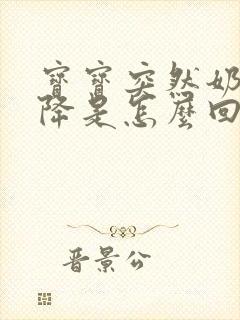 寶寶突然奶
降是怎麼回
晋景公